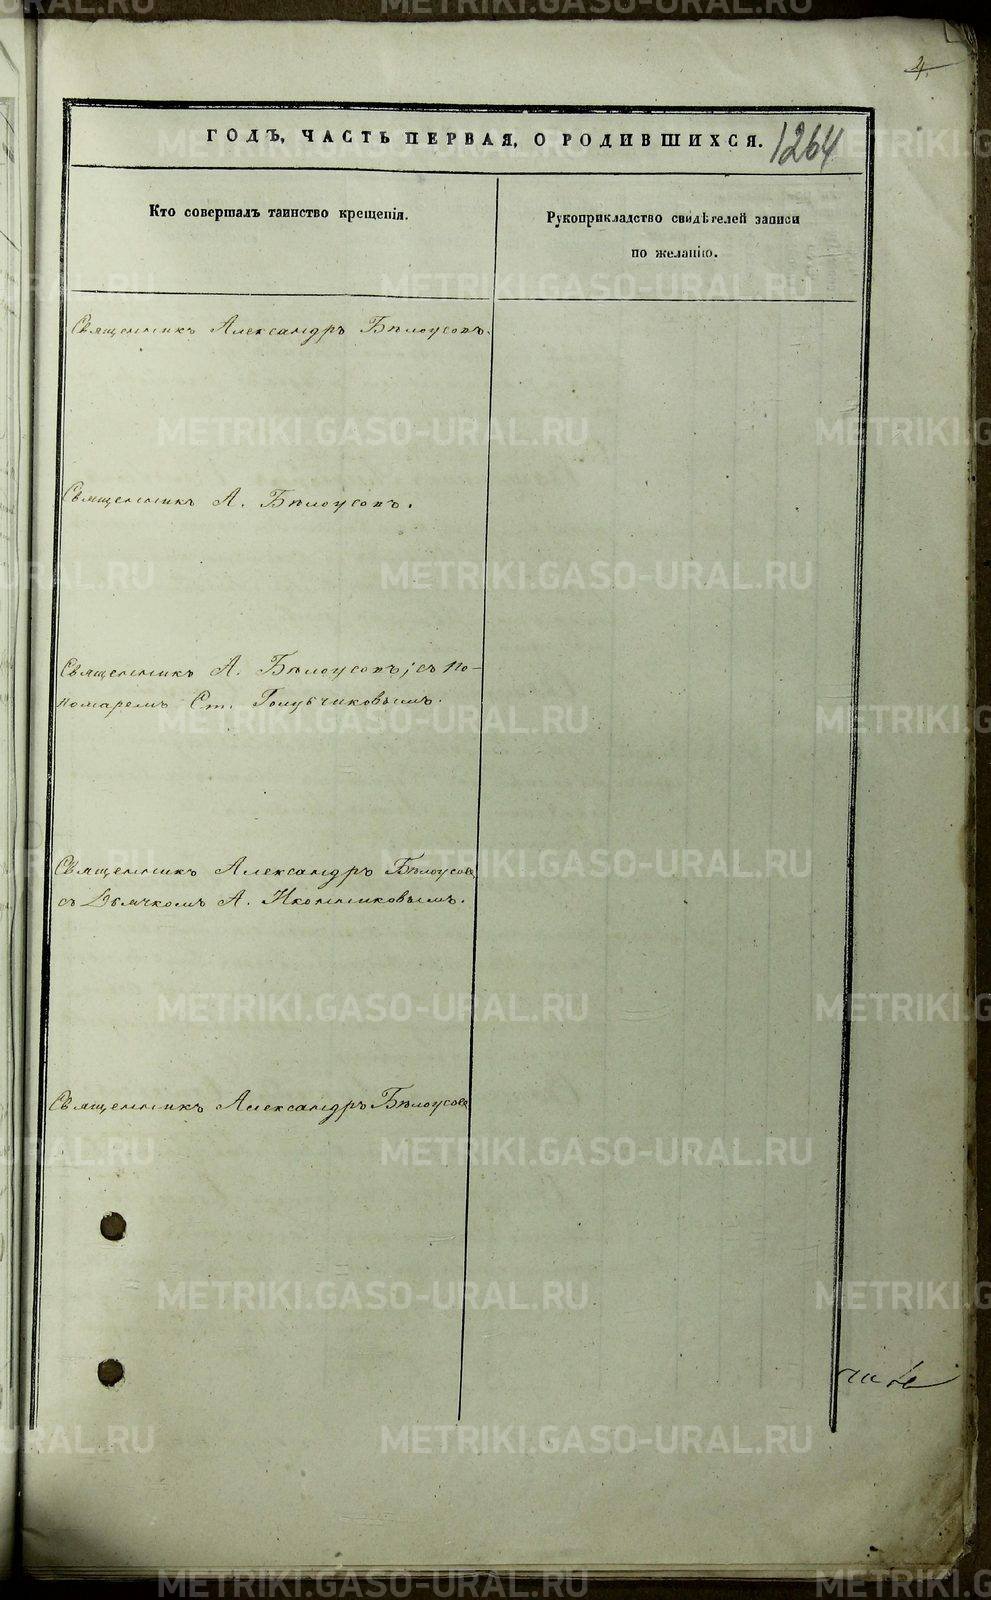 4.
ГОДЪ, ЧАСТЬ ПЕРВАЯ, О РОДИВШИХСЯ.
1264
Кто совершалъ таинство крещенія.
Рукоприкладство свидѣтелей записи
по желанію.
Священникъ Александръ Бѣлоусовъ.
Священникъ А. Бѣлоусовъ.
Священникъ А. Бѣлоусовъ; съ По-
номаремъ Ст. Голубчиковымъ.
Священникъ Александръ Бѣлоусовъ
съ Дьячкомъ А. Иконниковымъ.
Священникъ Александръ Бѣлоусовъ
METRIKI.GASO-URAL.RU